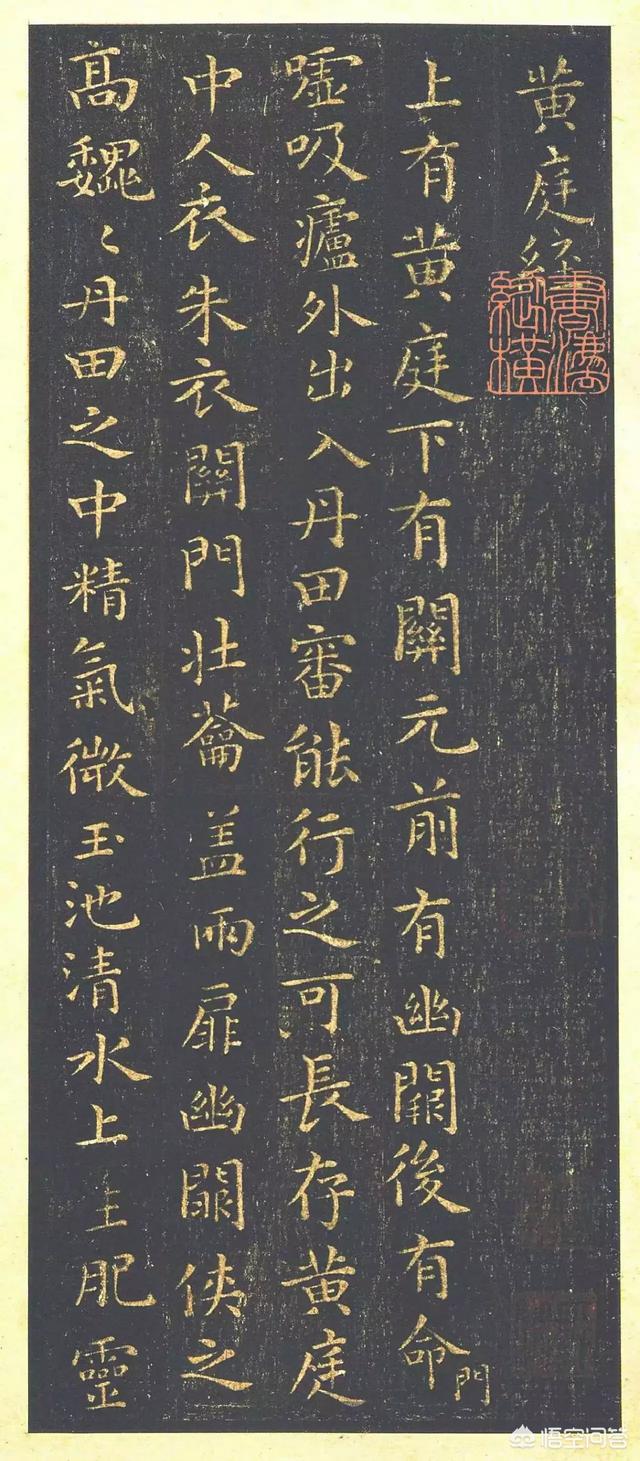 黄庭經
上有黄庭下有關元前有幽闕後有命門
嘘吸廬外出入丹田審能行之可長存黄庭
中人衣朱衣關門壯蘥盖兩扉幽闕俠之
高魏〻丹田之中精氣微玉池清水上生肥靈
悟空问答